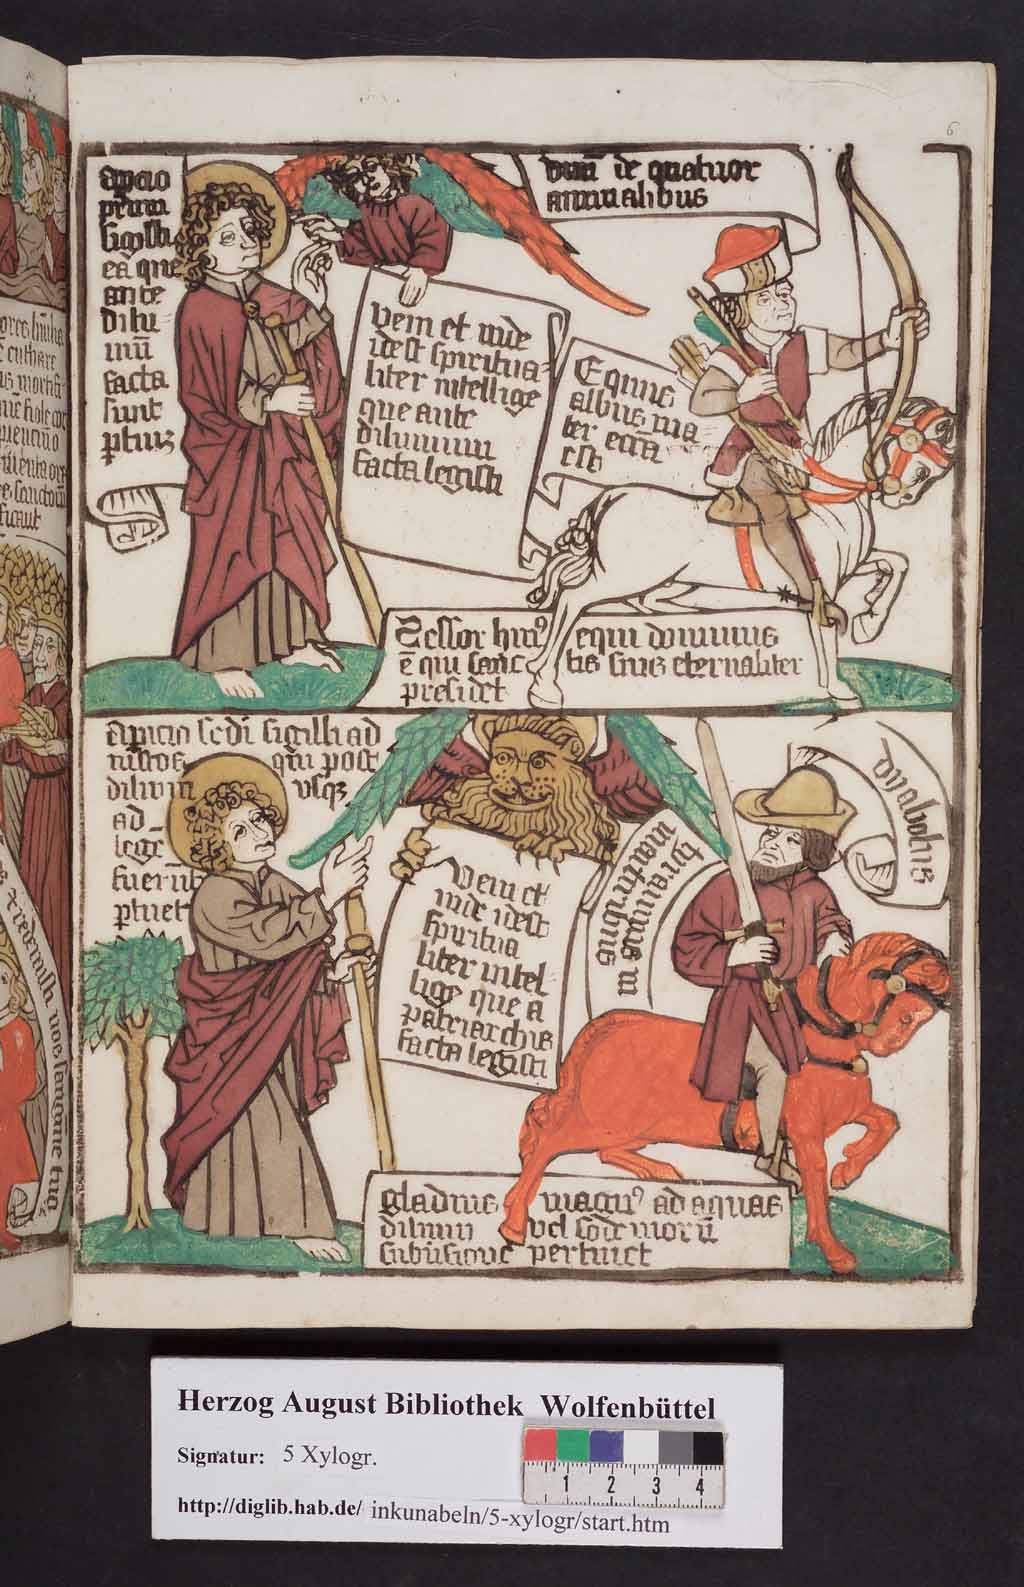 6
apicio
primi
sigilli
ea que
ante
dilu
uiū
facta
sunt
ptinȝ
vnū de quatuor
animalibus
veni et uide
idest spiritua-
liter intellige
que ante
diluuium
facta legisti
Equus
albus ma
ter ecc̄a
est
Sessor huiꝰ equi dominus
ē qui sanc tis suis eternaliter
presidet
apicio sc̄di sigilli ad
iustos qui post
diluuiū vsqȝ
ad
lege
fuerūt
ptinet
veni et
uide idest
spiritua
liter intel
lige que a
patriarchis
facta legisti
diabolus
gladius magnꝰ ad aquas
diluuii vel sodomorū
pertinet
redemisti nos sanguine tuo
Herzog August Bibliothek Wolfenbüttel
Signatur: 5 Xylogr.
1 2 3 4
http://diglib.hab.de/ inkunabeln/5-xylogr/start.htm